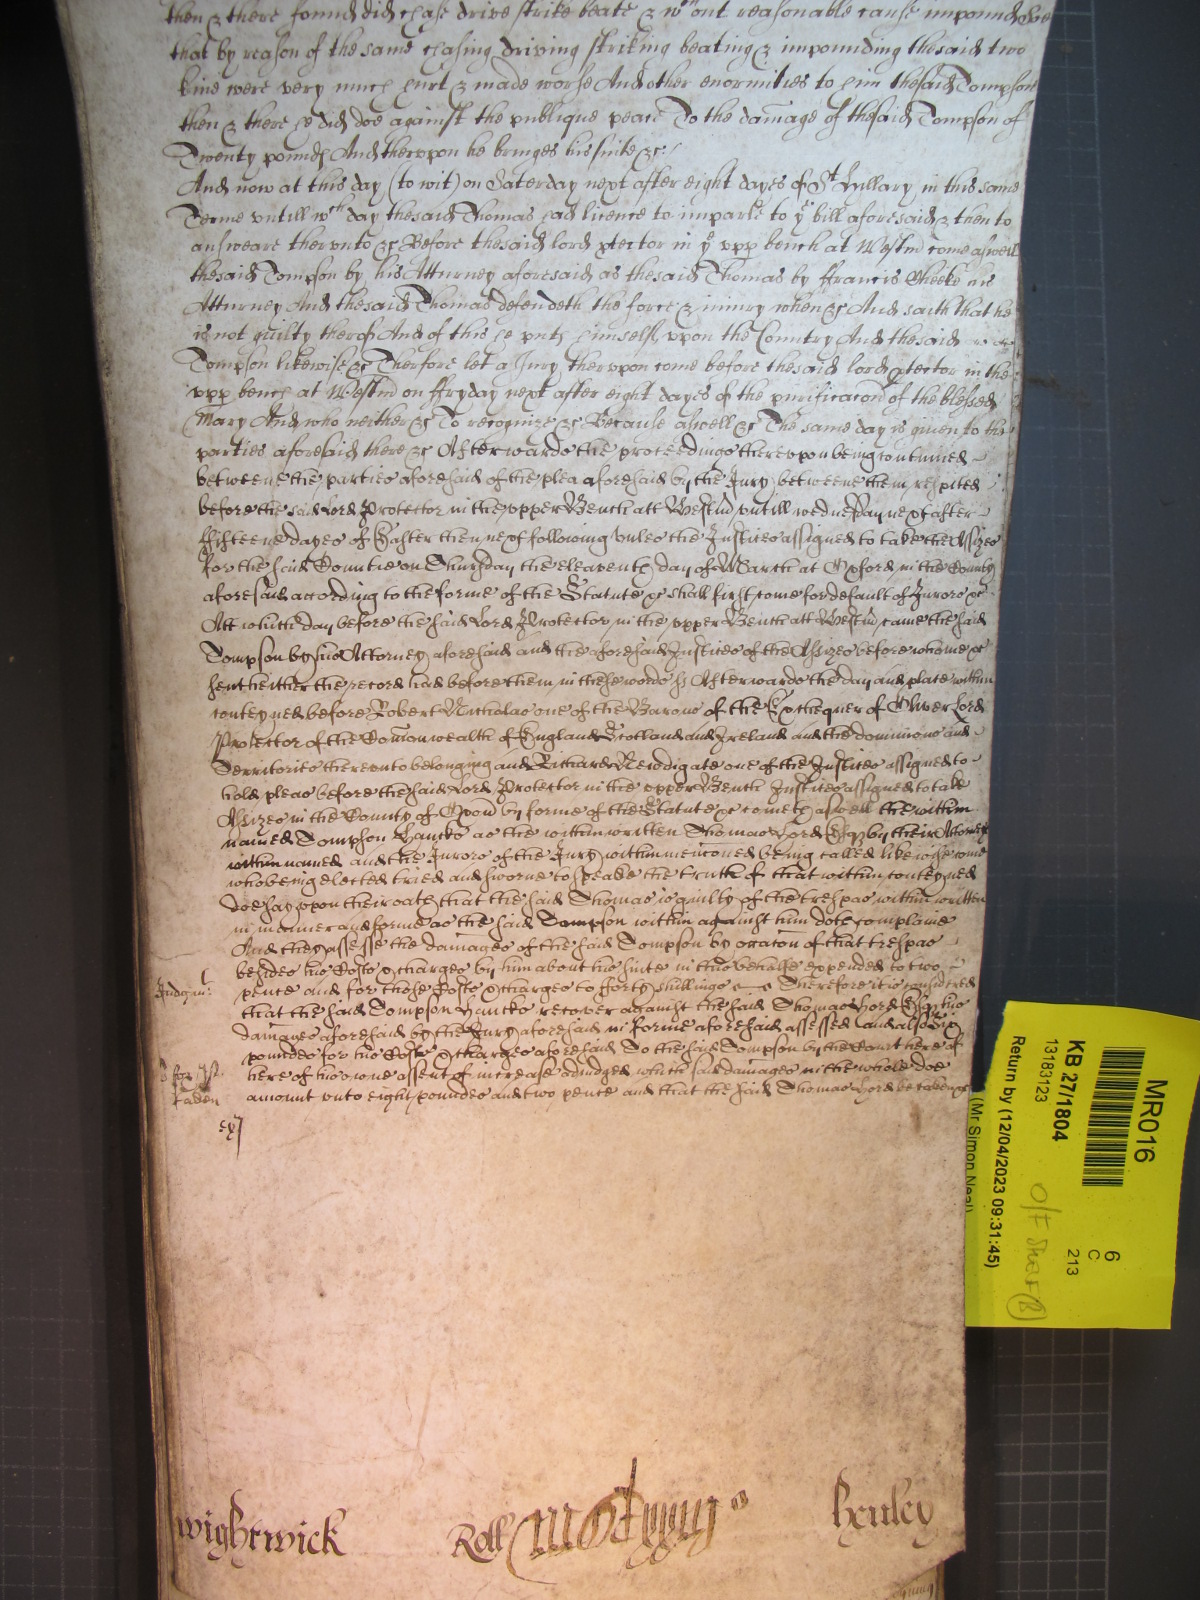 then & there found did chase drive strike beate & wthout reasonable cause impound soe
that by reason of the same chasing driving striking beating & impounding the said two
kine were very much hurt & made worse And other enormities to him the said Tompson
then & there he did doe against the publique peace To the damage of the said Tompson of
Twenty pounds And therupon he bringes his suite &c
And now at this day (to wit) on Saterday next after eight dayes of St Hillary in this same
Terme untill wch day the said Thomas had licence to imparle to ye bill aforesaid & then to
answeare therunto &c Before the said lord ptector in ye upp bench at Westm come aswell
the said Tompson by his Atturney aforesaid as the said Thomas by ffrancis Cheeke his
Atturney And the said Thomas defendeth the force & iniury when &c And saith that he
is not guilty therof And of this he putts himself upon the Country And the said
Tompson likewise &c Therfore let a Jury therupon come before the said lord ptector in the
upp bench at Westm on ffryday next after eight dayes of the purificacon of the blessed
Mary And who neither &c To recognize &c Because aswell &c The same day is given to the
parties aforesaid there &c Afterwards the proceedings thereupon being continued
betweene the parties aforesaid of the plea aforesaid by the Jury betweene them respited
before the said Lord Protector in the upper Bench att Westm untill wednesday next after
ffifteene dayes of Easter then next following unles the Justices assigned to take the Assizes
for the said Countie on Thursday the eleaventh day of March at Oxford in the County
aforesaid according to the forme of the Statute &c shall first come for default of Jurors &c
Att which day before the said Lord Protector in the upper Bench att Westm came the said
Tompson by his Attorney aforesaid and the aforesaid Justices of the Assizes before whome &c
sent hether the record had before them in these words ss Afterwards the day and place within
conteyned before Robert Nicholas one of the Barons of the Exchequer of Oliver Lord
Protector of the Comonwealth of England Scotland and Ireland and the dominions and
Territories thereunto belonging and Richard Newdigate one of the Justices assigned to
hold pleas before the said Lord Protector in the upper Bench Justices assigned to take
Assizes in the County of Oxon by forme of the Statute &c cometh aswell the within
named Tompson Hancks as the within written Thomas Hord Esqr by their Attorneys
within named and the Jurors of the Jury within menconed being called likewise come
who being elected tried and sworne to speake the truth of that within conteyned
doe say upon their oath that the said Thomas is guilty of the trespas within written
in manner and forme as the said Tompson within against him doth complaine
And they assesse the damages of the said Tompson by occacon of that trespas
besides his Costs & charges by him about his suite in this behalfe expended to two
pence and for those Costs & charges to fforty shillings Therefore it is considered
Judgmt
that the said Tompson Hancks recover against the said Thomas Hord Esqr his
damages aforesaid by the Jury aforesaid in forme aforesaid assessed and also six
poundes for his Costs & charges aforesaid To the said Tompson by the Court here of
here of his owne assent of increase adiudged which said damages in the whole doe
amount unto eight poundes and two pence and that the said Thomas Hord be taken &c
exr
wightwick
Roll
henley
MR016
KB 27/1804
13183123
Return by (12/04/2023 09:31:45)
(Mr Simon Neal)
6
C
213